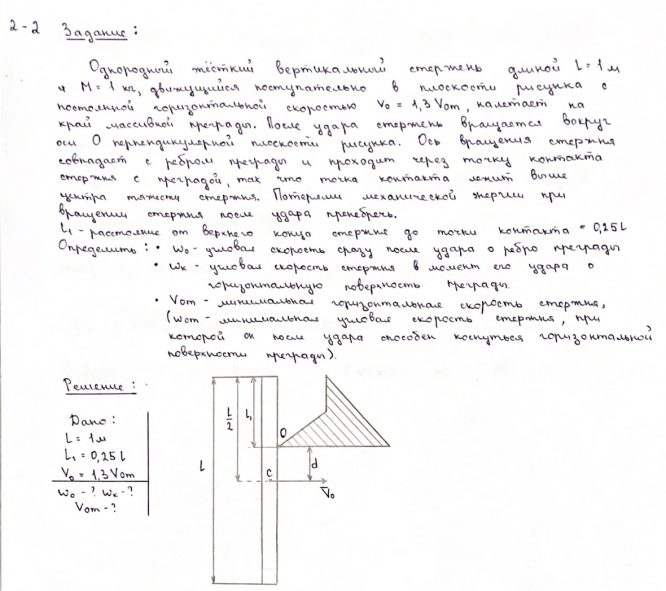 2-2 Задание:
Однородный жёсткий вертикальный стержень длиной L=1м
и M=1 кг, движущийся поступательно в плоскости рисунка с
постоянной горизонтальной скоростью V₀ = 1,3 Vom, налетает на
край массивной преграды. После удара стержень вращается вокруг
оси O перпендикулярной плоскости рисунка. Ось вращения стержня
совпадает с ребром преграды и проходит через точку контакта
стержня с преградой, так что точка контакта лежит выше
центра тяжести стержня. Потерями механической энергии при
вращении стержня после удара пренебречь.
L₁ - расстояние от верхнего конца стержня до точки контакта = 0,25L
Определить: • ω₀ - угловая скорость сразу после удара о ребро преграды
• ωк - угловая скорость стержня в момент его удара о
горизонтальную поверхность преграды.
• Vom - минимальная горизонтальная скорость стержня,
(ωom - минимальная угловая скорость стержня, при
которой он после удара способен коснуться горизонтальной
поверхности преграды).
Решение:
Дано:
L = 1м
L₁ = 0,25 L
V₀ = 1,3 Vom
ω₀ - ? ωк - ?
Vom - ?
L
L/2
L₁
O
d
C
V₀